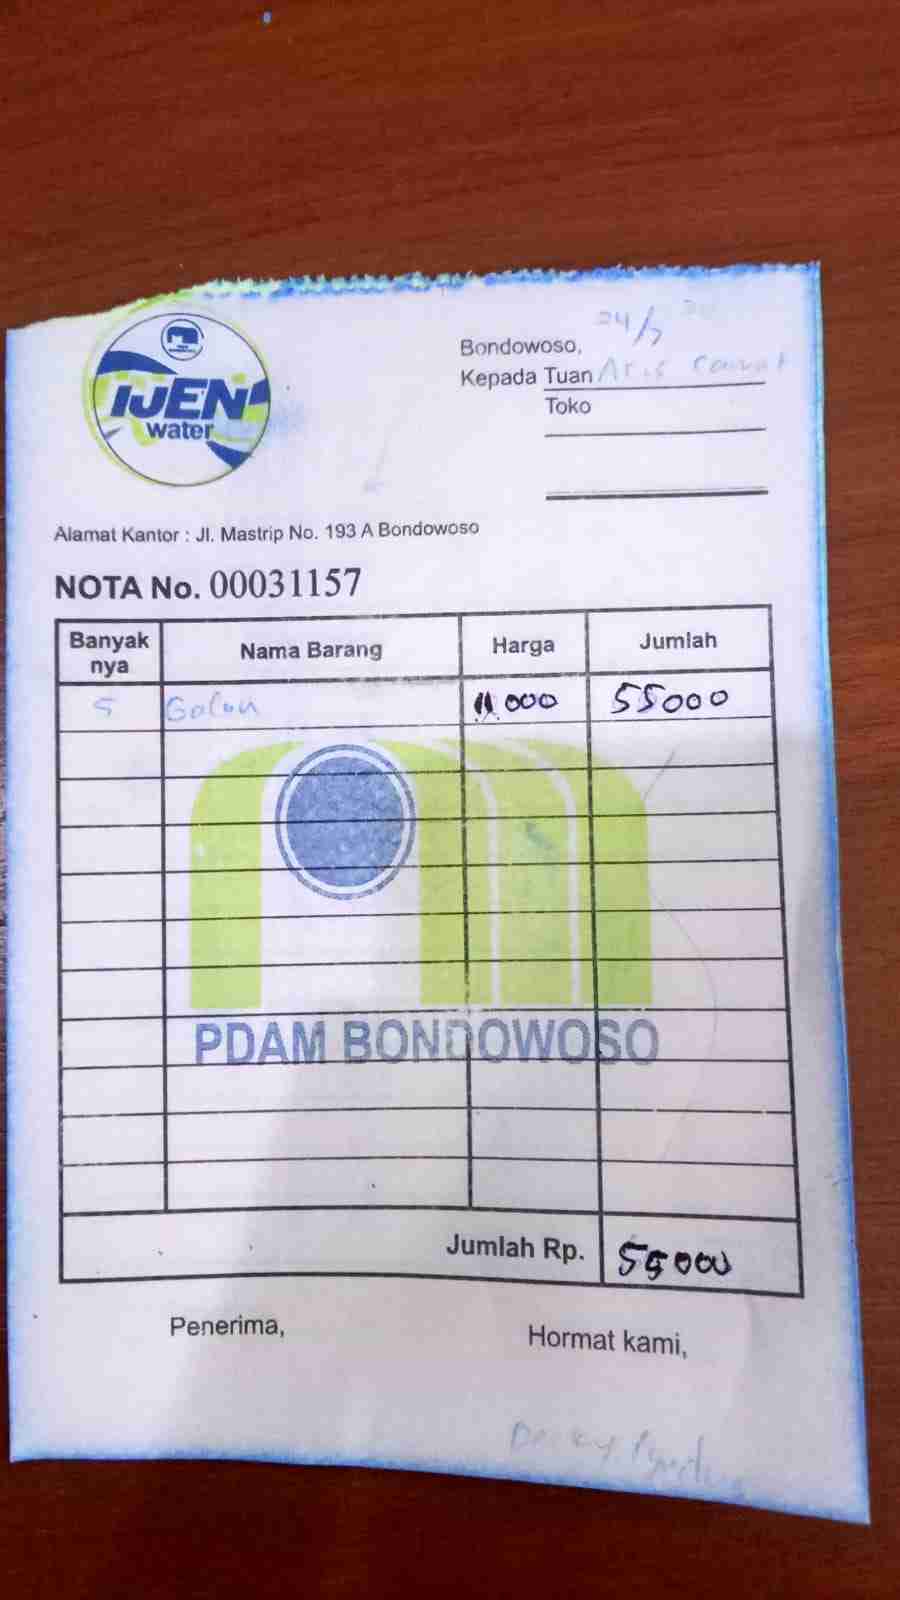 IJEN
water
Bondowoso, 24/7 20
Kepada Tuan Aris
Toko
Alamat Kantor : Jl. Mastrip No. 193 A Bondowoso
NOTA No. 00031157
Banyak nya Nama Barang Harga Jumlah
5 Galon 11000 55000
PDAM BONDOWOSO
Jumlah Rp. 55000
Penerima, Hormat kami,